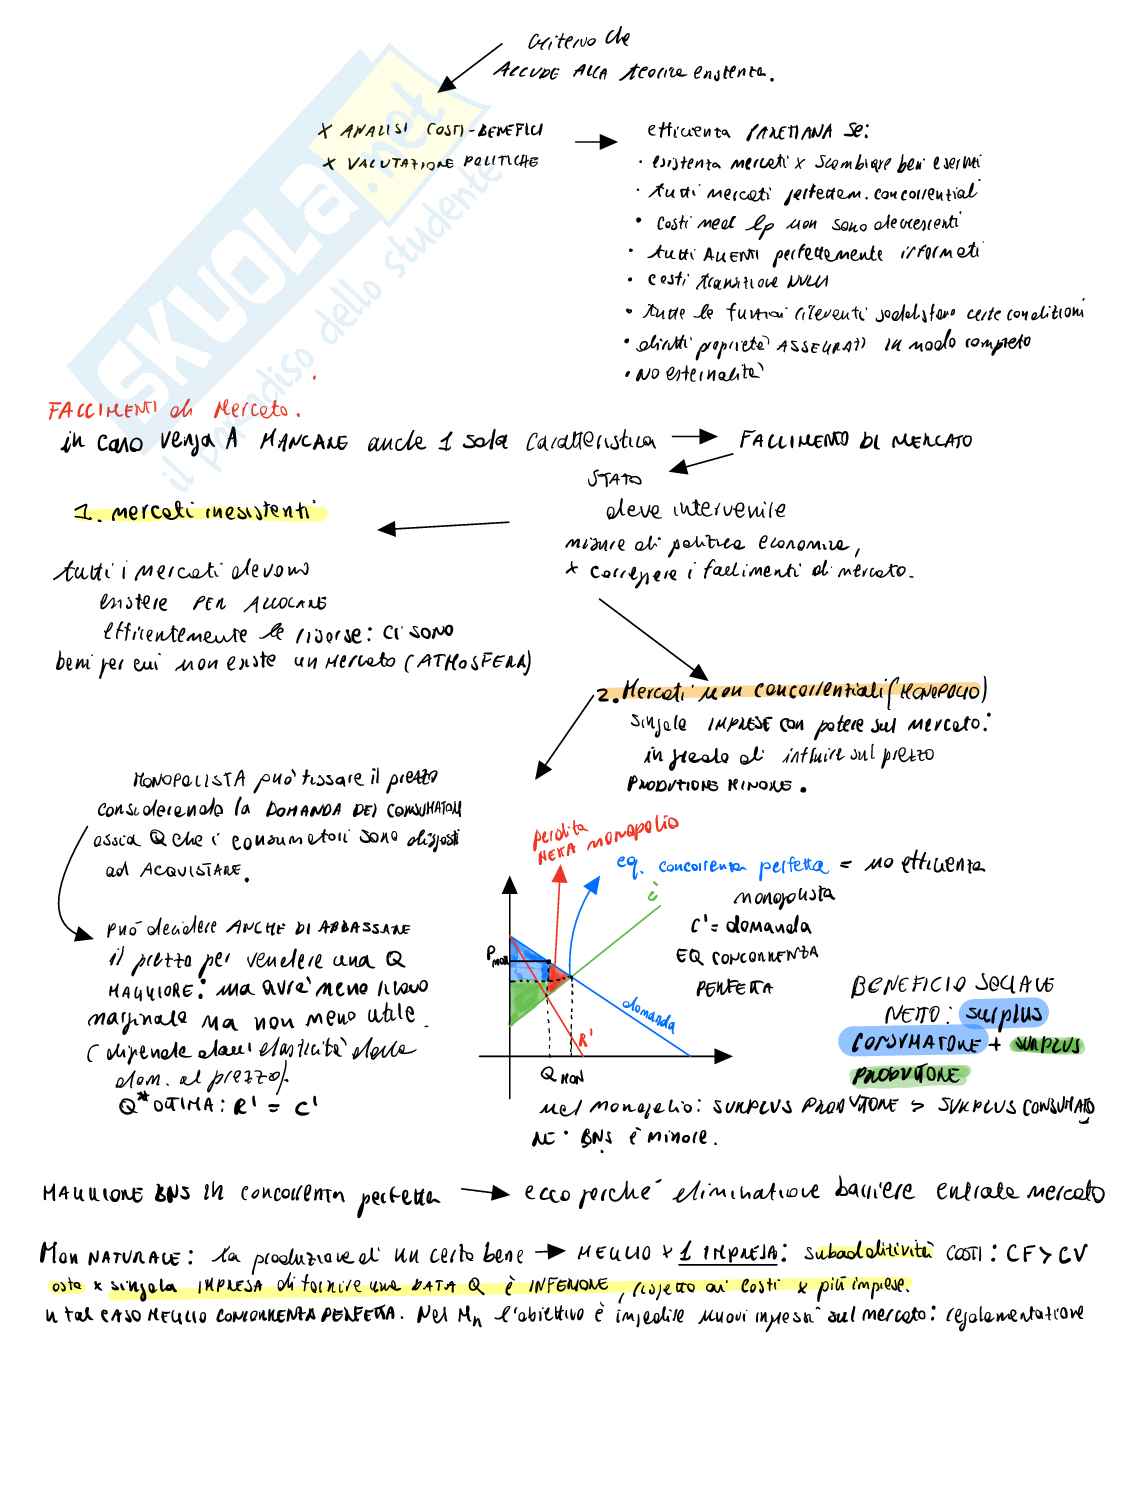 criterio che
ALLUDE ALLA teorica esistenza.
x ANALISI COSTI-BENEFICI
x VALUTAZIONE POLITICHE
efficienza PARETIANA se:
· esistenza mercati x scambiare beni e servizi
· tutti mercati perfettam. concorrenziali
· costi med lp non sono decrescenti
· tutti AGENTI perfettamente informati
· costi transizione NULLI
· tutte le funzioni rilevanti soddisfano certe condizioni
· diritti proprietà ASSEGNATI in modo completo
· NO esternalità
SKUOLA.net
il paradiso dello studente
FALLIMENTI di Mercato.
in caso venga A MANCARE anche 1 sola caratteristica → FALLIMENTO DI MERCATO
STATO
deve intervenire
misure di politica economica,
x correggere i fallimenti di mercato.
1. mercati inesistenti
tutti i mercati devono
esistere PER ALLOCARE
efficientemente le risorse: CI SONO
beni per cui non esiste un mercato (ATMOSFERA)
2. Mercati non concorrenziali (MONOPOLIO)
singole IMPRESE con potere sul mercato:
in grado di influire sul prezzo
PRODUZIONE MINORE.
MONOPOLISTA può fissare il prezzo
considerando la DOMANDA DEI CONSUMATORI
ossia Q che i consumatori sono disposti
ad ACQUISTARE.
può decidere ANCHE DI ABBASSARE
il prezzo per vendere una Q
MAGGIORE: ma avrà meno ricavo
marginale ma non meno utile.
(dipende dall'elasticità della
dom. al prezzo).
Q* OTTIMA: R' = C'
perdita
NETTA monopolio
eq. concorrenza perfetta = no efficienza
monopolista
C' = domanda
EQ CONCORRENZA
PERFETTA
c'
PMON
domanda
R'
Q MON
BENEFICIO SOCIALE
NETTO: surplus
CONSUMATORE + SURPLUS
PRODUTTORE
nel monopolio: SURPLUS PRODUTTORE > SURPLUS CONSUMATO
RE. BNS è minore.
MAGGIORE BNS in concorrenza perfetta → ecco perché eliminazione barriere entrata mercato
Mon NATURALE: la produzione di un certo bene → MEGLIO x 1 IMPRESA: subadditività COSTI: CF > CV
osto x singola IMPRESA di fornire una DATA Q è INFERIORE, rispetto ai costi x più imprese.
n tal CASO MEGLIO CONCORRENZA PERFETTA. Nel Mn l'obiettivo è impedire nuovi ingressi sul mercato: regolamentazione